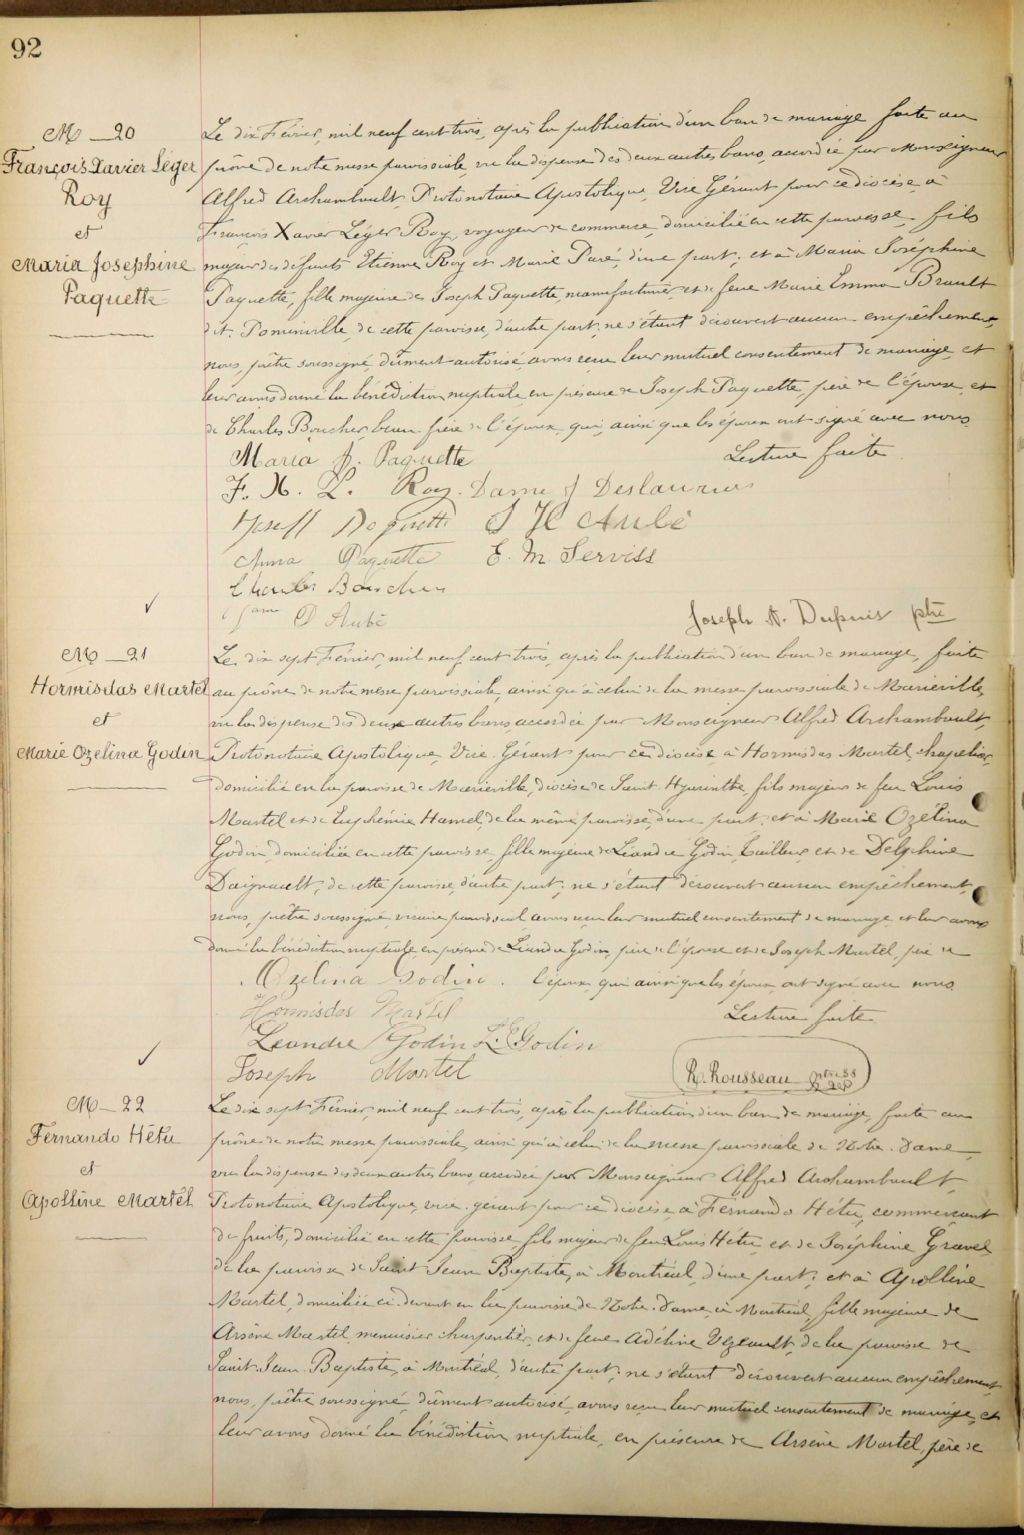 92
M — 20
François Xavier Léger
Roy
et
Maria Josephine
Paquette
Le dix Février, mil neuf cent trois, après la publication d'un ban de mariage faite au
prône de notre messe paroissiale, vu la dispense des deux autres bans, accordée par Monseigneur
Alfred Archambault, Protonotaire Apostolique, Vice Gérant pour ce diocèse, à
François Xavier Léger Roy, voyageur de commerce, domicilié en cette paroisse, fils
majeur des défunts Etienne Roy et Marie Paré, d'une part; et à Maria Joséphine
Paquette, fille majeure de Joseph Paquette, manufacturier et de feue Marie Emma Brault
dit Pominville, de cette paroisse, d'autre part; ne s'étant découvert aucun empêchement,
nous, prêtre soussigné, dûment autorisé, avons reçu leur mutuel consentement de mariage, et
leur avons donné la bénédiction nuptiale, en présence de Joseph Paquette, père de l'épouse, et
de Charles Boucher beau frère de l'époux, qui, ainsi que les époux ont signé avec nous.
Maria J. Paquette Lecture faite.
F. X. L. Roy. Dame J Deslauriers
Joseph Paquette J H Aubé
Anna Paquette E. M. Serviss
Charles Boucher
Dame D Aubé Joseph A. Dupuis ptre
M — 21
Hormisdas Martel
et
Marie Ozelina Godin
Le dix sept Février, mil neuf cent trois, après la publication d'un ban de mariage, faite
au prône de notre messe paroissiale, ainsi qu'à celui de la messe paroissiale de Marieville,
vu la dispense des deux autres bans, accordée par Monseigneur Alfred Archambault,
Protonotaire Apostolique, Vice. Gérant pour ce diocèse à Hormisdas Martel, chapelier,
domicilié en la paroisse de Marieville, diocèse de Saint Hyacinthe, fils majeur de feu Louis
Martel et de Euphémie Hamel, de la même paroisse, d'une part; et à Marie Ozélina
Godin, domiciliée en cette paroisse, fille majeure de Léandre Godin, tailleur, et de Delphine
Daignault, de cette paroisse, d'autre part; ne s'étant découvert aucun empêchement,
nous, prêtre soussigné, vicaire paroissial avons reçu leur mutuel consentement de mariage, et leur avons
donné la bénédiction nuptiale, en présence de Léandre Godin, père de l'épouse et de Joseph Martel, frère de
Ozelina Godin. l'époux, qui ainsi que les époux, ont signé avec nous.
Hormisdas Martel Lecture faite
Leandre Godin L. E Godin
Joseph Martel R. Rousseau ptre
M — 22
Fernando Hétu
et
Apolline Martel
Le dix sept Février mil neuf cent trois, après la publication d'un ban de mariage, faite au
prône de notre messe paroissiale, ainsi qu'à celui de la messe paroissiale de Notre. Dame,
vu la dispense des deux autres bans, accordée par Monseigneur Alfred Archambault,
Protonotaire Apostolique, vice. gérant pour ce diocèse, à Fernando Hétu, commerçant
de fruits, domicilié en cette paroisse, fils majeur de feu Louis Hétu, et de Joséphine Gravel
de la paroisse de Saint Jean Baptiste, à Montréal, d'une part; et à Apolline
Martel, domiciliée ci. devant en la paroisse de Notre. Dame, à Montréal, fille majeure de
Arsène Martel, menuisier charpentier, et de feue Adéline Vezeault, de la paroisse de
Saint. Jean. Baptiste, à Montréal, d'autre part; ne s'étant découvert aucun empêchement
nous, prêtre soussigné, dûment autorisé, avons reçu leur mutuel consentement de mariage, et
leur avons donné la bénédiction nuptiale, en présence de Arsène Martel, père de